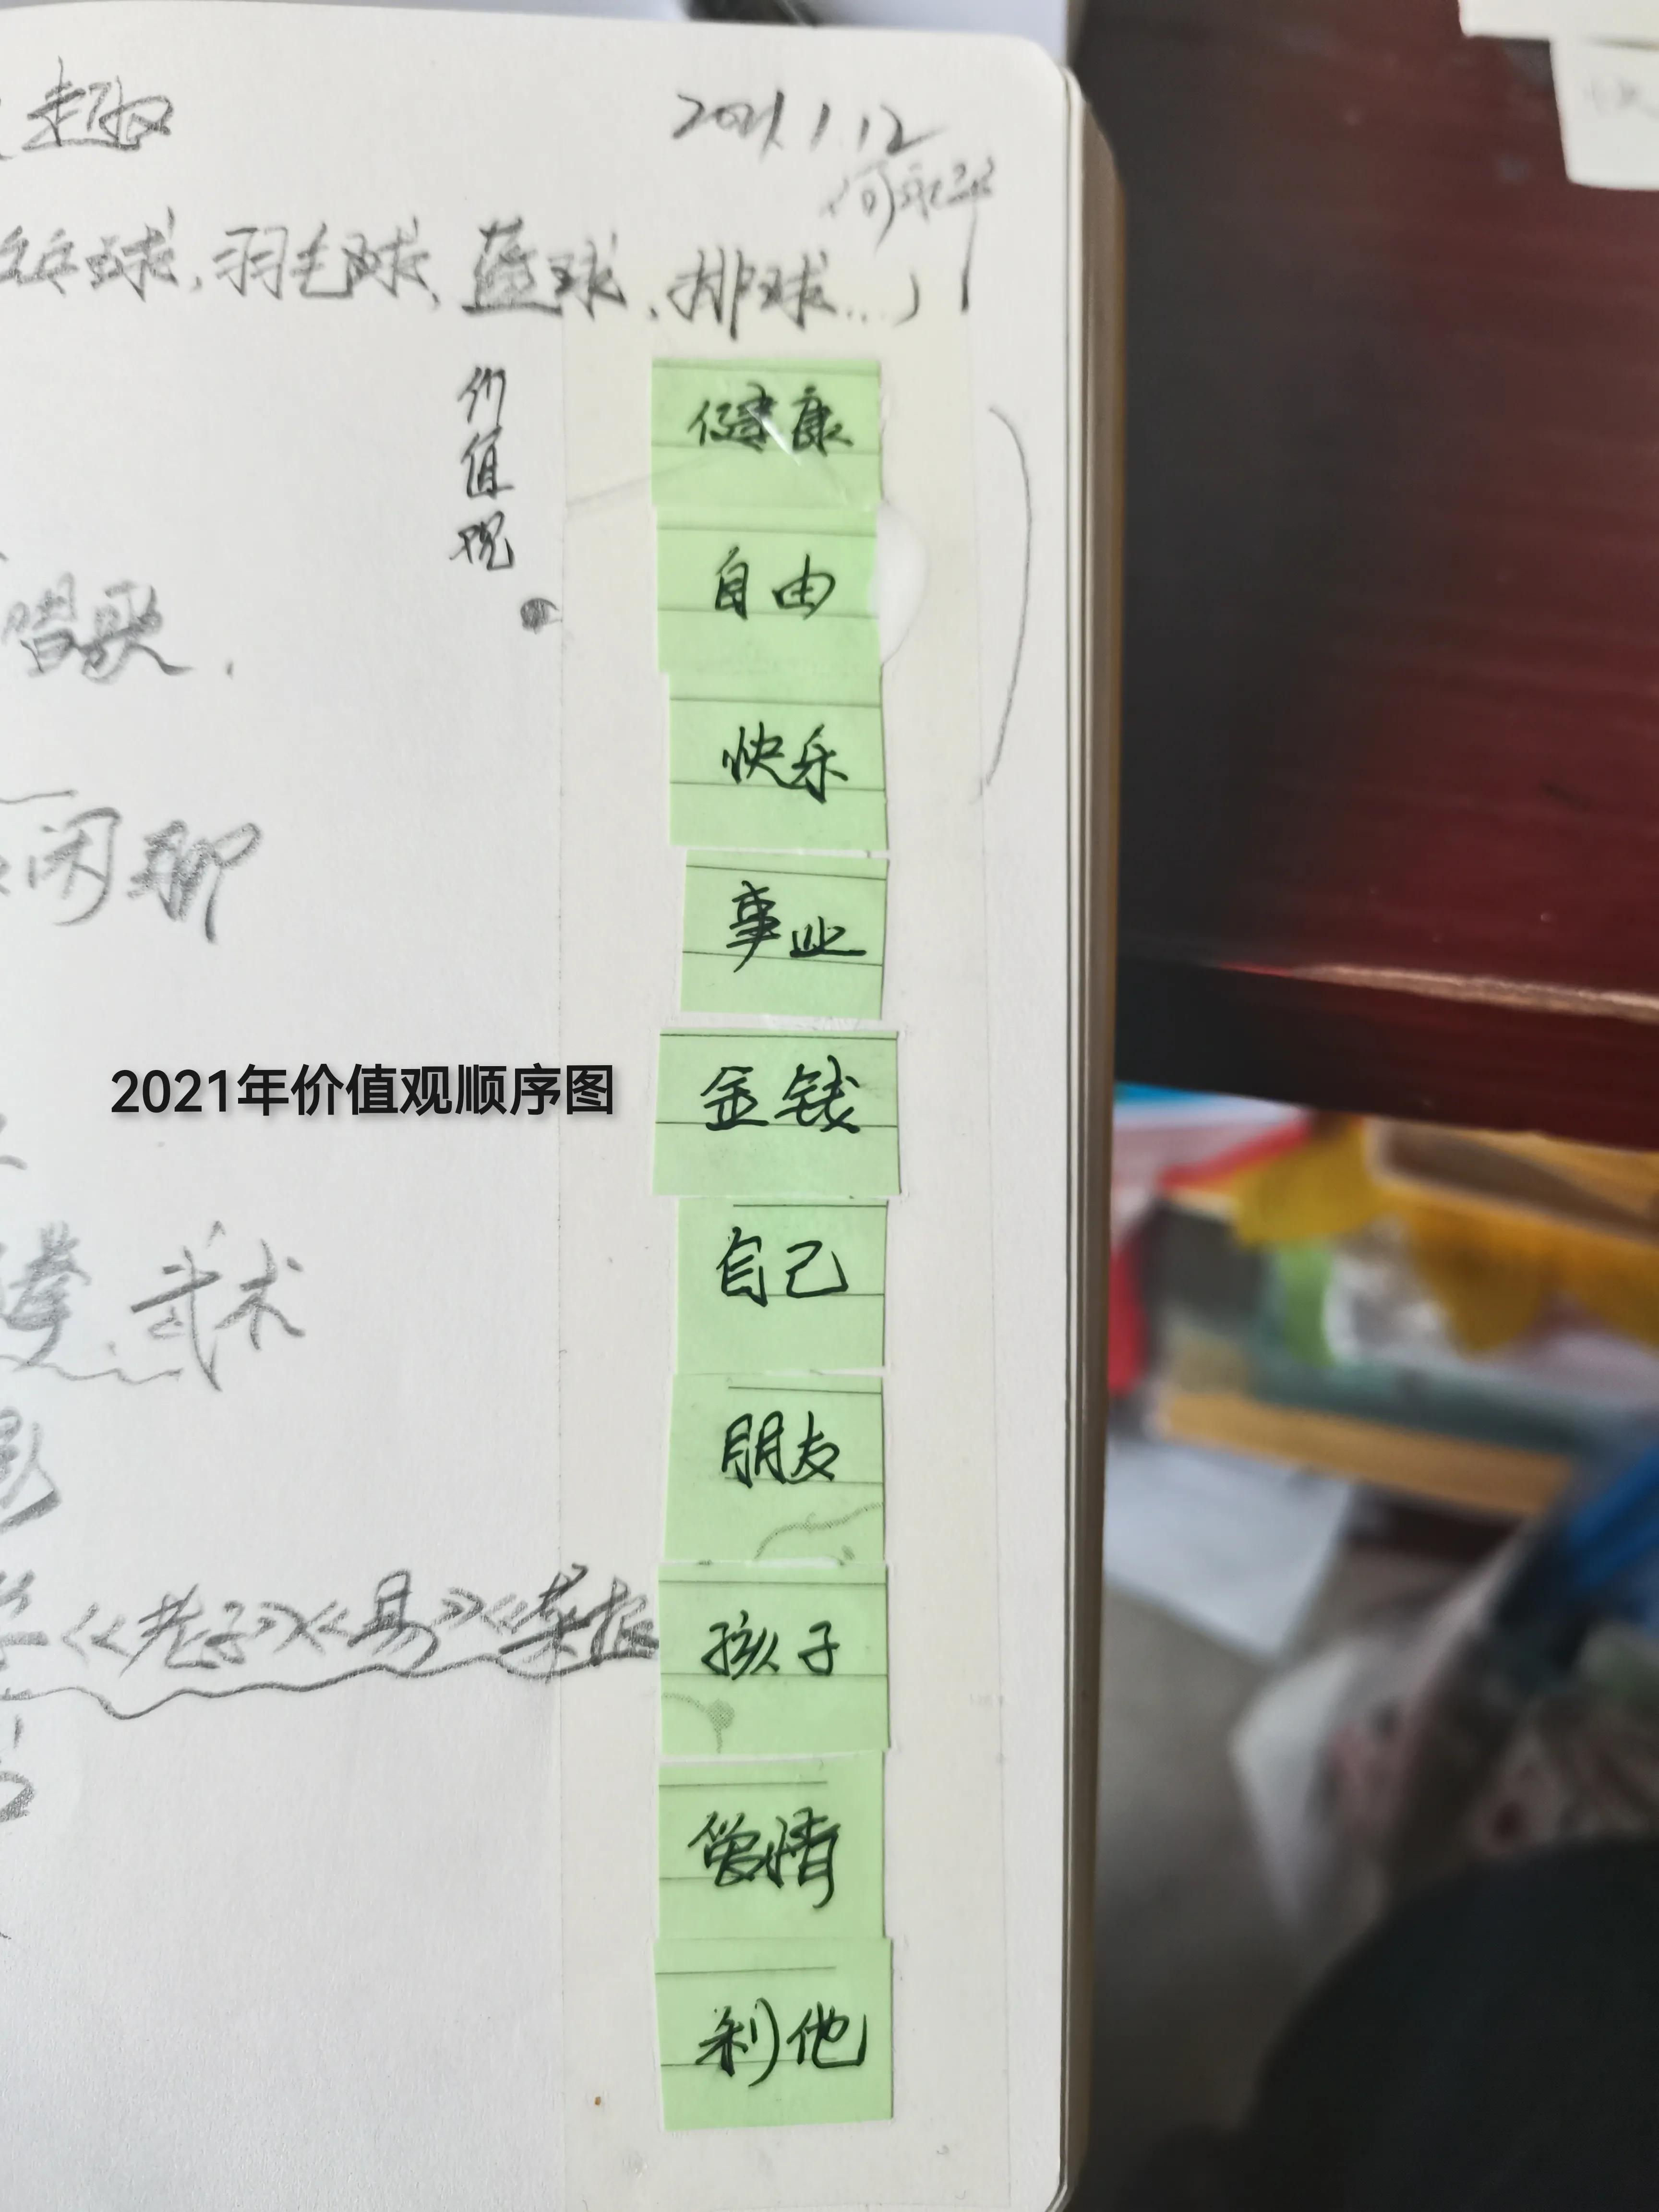 趣
2021.1.12
乒球、羽毛球、篮球、排球…）
价值观
健康
自由
唱歌.
快乐
闲聊
事业
2021年价值观顺序图
金钱
自己
拳、武术
朋友
《老子》《易》《菜根
孩子
爱情
利他